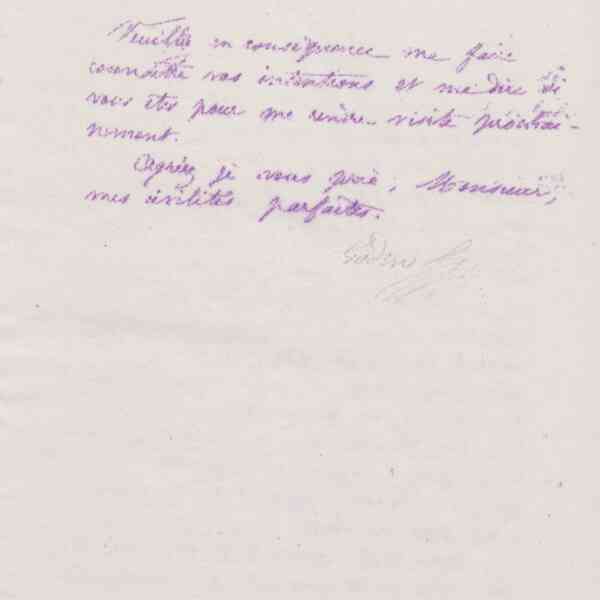 Veuillez en conséquence me faire
connaître vos intentions et me dire si
vous êtes pour me rendre visite prochai-
nement.
Agréez je vous prie, Monsieur,
mes civilités parfaites.